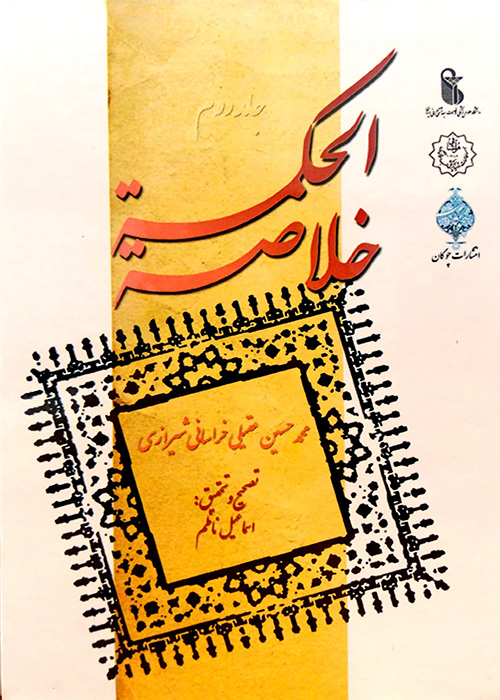 جلد دوم
خلاصة
الحکمة
محمد حسین عقیلی خراسانی شیرازی
تصحیح و تحقیق:
اسماعیل ناظم
انتشارات چوگان